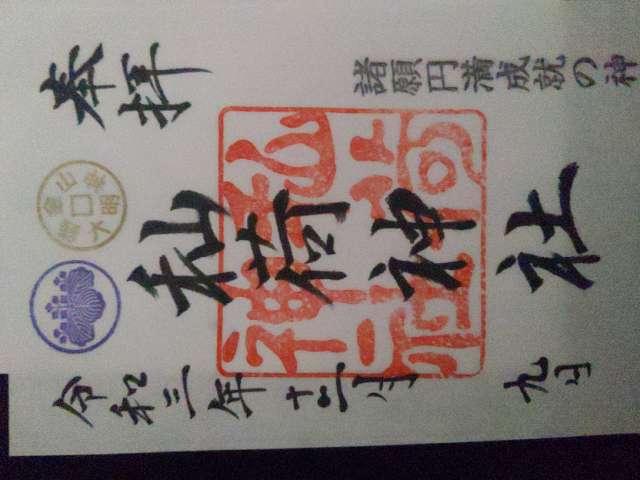 諸願円満成就の神
奉拝
秈荷神社
令和三年十二月九日